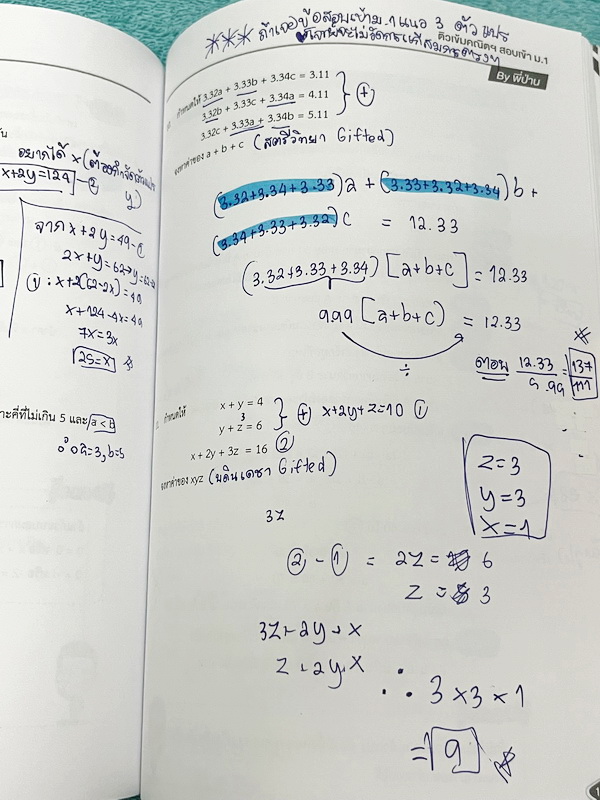 *** ถ้าเจอข้อสอบเข้าม.1 แนว 3 ตัวแปร
ติวเข้มคณิตฯ สอบเข้า ม.1
By พี่ปาน
กำหนดให้ 3.32a + 3.33b + 3.34c = 3.11
3.32b + 3.33c + 3.34a = 4.11
3.32c + 3.33a + 3.34b = 5.11
} +
จงหาค่าของ a + b + c (สตรีวิทยา Gifted)
(3.32+3.34+3.33)a + (3.33+3.32+3.34)b +
(3.34+3.33+3.32)c = 12.33
(3.32+3.33+3.34) [a+b+c] = 12.33
9.99 [a+b+c) = 12.33
÷
ตอบ 12.33/9.99 = 137/111
กำหนดให้ x + y = 4
3
y + z = 6
} + x+2y+z=10 ①
x + 2y + 3z = 16 ②
จงหาค่าของ xyz (บดินเดชา Gifted)
z=3
y=3
x=1
3z
② - ① = 2z = 6
z = 3
3z+2y+x
z+2y+x
∴ 3×3×1
= 9
อยากได้ x
x+2y=124 - ②
y)
จาก x+2y=49-①
2x+y=62→y=62-2x
①: x+2(62-2x)=49
x+124-4x=49
75=3x
25=x
าะคี่ที่ไม่เกิน 5 และ a < b
∴ a=3, b=5